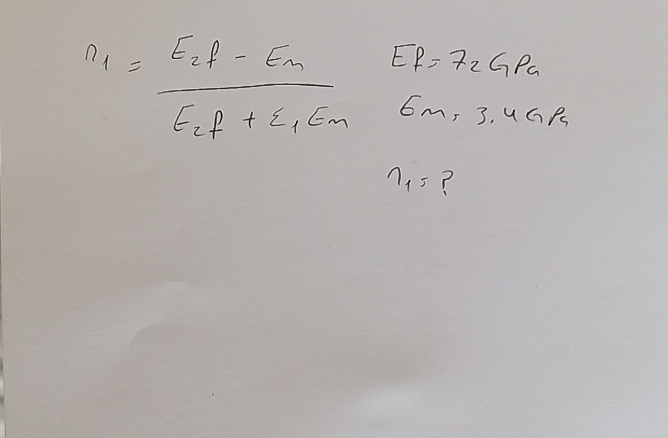 n₁ = E₂f - Em / E₂f + ε₁Em
Ef = 72 GPa
Em = 3.4 GPa
n₁ = ?